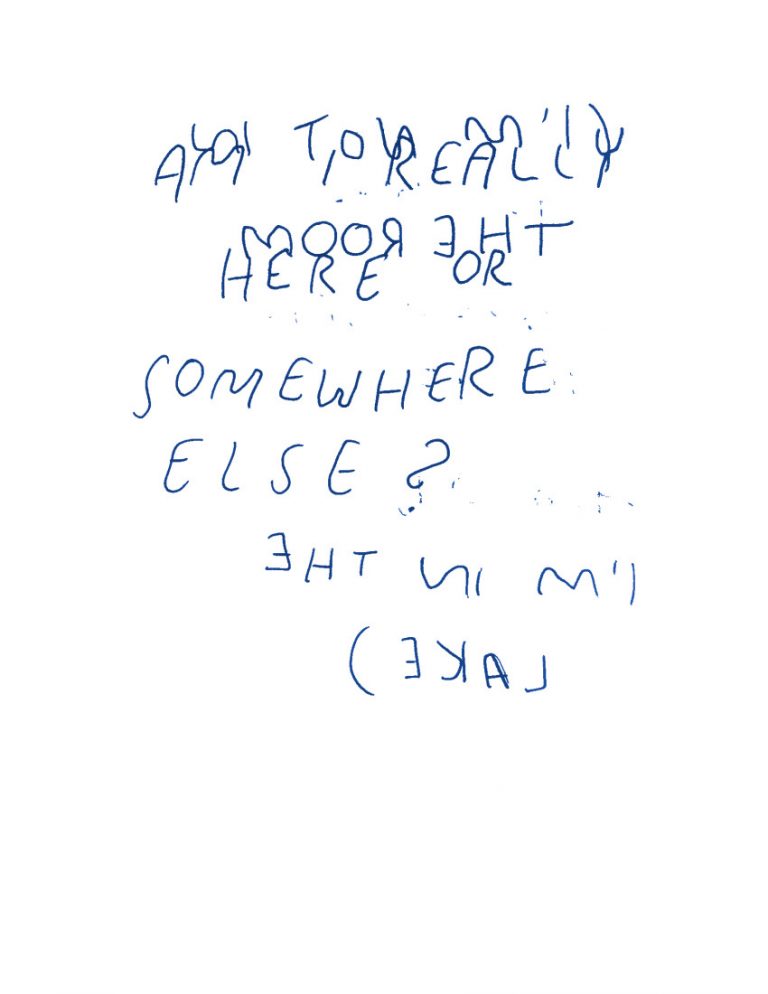 AM I REALLY
(I'M NOT IN
THE ROOM
HERE OR
SOMEWHERE
ELSE?
I'M IN THE
LAKE)